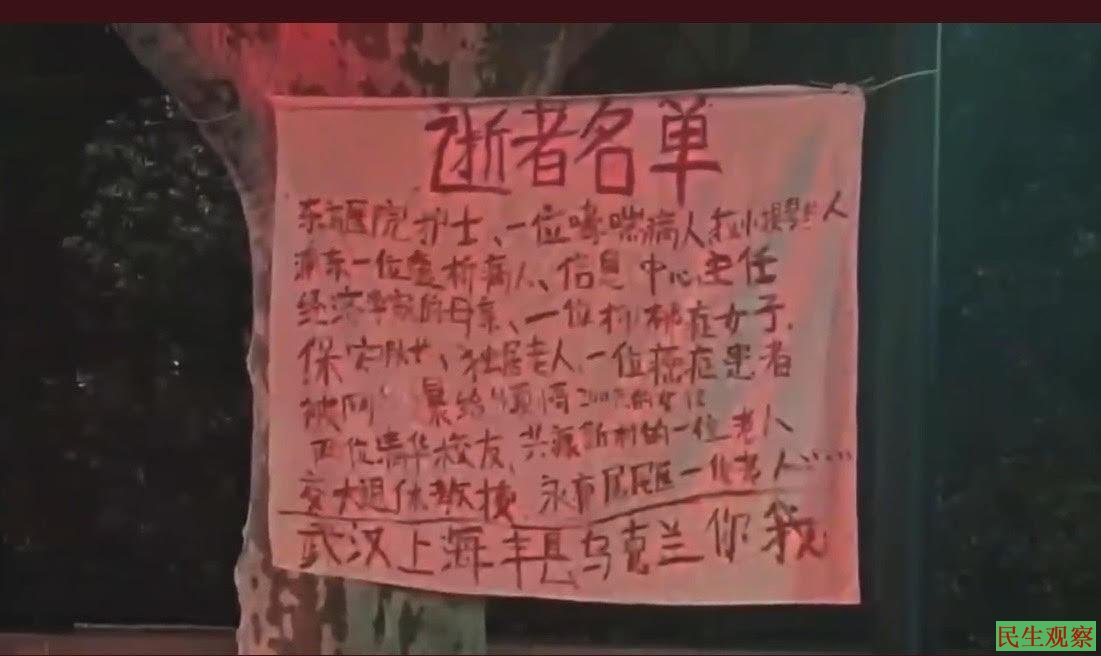 逝者名单
东方医院护士、一位哮喘病人拉小提琴人
浦东一位透析病人、信息中心主任
经济学家的母亲、一位抑郁症女子、
保安队长、独居老人、一位癌症患者
被网暴给 200元的女人
两位清华校友、共康新村的一位老人
交大退休教授、永 一位老人……
武汉上海丰县乌克兰你我
民生观察